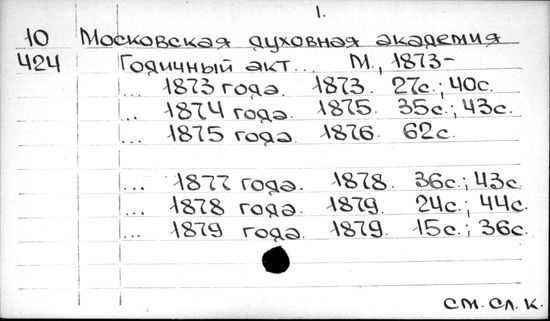 1.
10 Московская духовная академия
424 Годичный акт... М., 1873-
... 1873 года. 1873. 27с.; 40с.
... 1874 года. 1875. 35с.; 43с.
... 1875 года. 1876. 62с.
... 1877 года. 1878. 36с.; 43с.
... 1878 года. 1879. 24с.; 44с.
... 1879 года. 1879. 15с.; 36с.
см. сл. к.